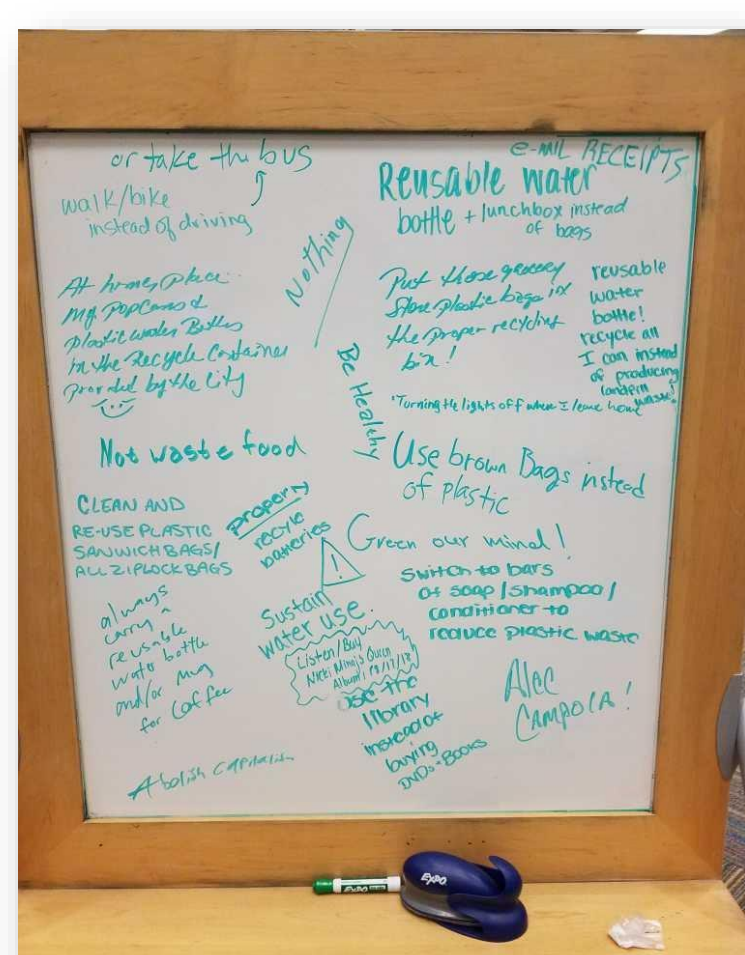 or take the bus
walk/bike
instead of driving
e-mail RECEIPTS
Reusable water
bottle + lunchbox instead
of bags
Nothing
At home, place
my pop cans &
plastic water Bottles
in the Recycle Container
provided by the City
Put those grocery
Store plastic bags in
the proper recycling
bin!
reusable
water
bottle!
recycle all
I can instead
of producing
landfill
waste!
Be Healthy
Turning the lights off when I leave home
Not waste food
Use brown Bags instead
of plastic
CLEAN AND
RE-USE PLASTIC
SANWICH BAGS/
ALL ZIPLOCK BAGS
properly
recyle
batteries
Green our mind!
!
Switch to bars
of soap/shampoo/
conditioner to
reduce plastic waste
always
carry a
reusable
water bottle
and/or mug
for coffee
Sustain
water use.
Listen/Buy
Nicki Minaj's Queen
Album!
use the
library
instead of
buying
DVDs + Books
Alec
CAMPOLA!
Abolish Capitalism
EXPO
EXPO